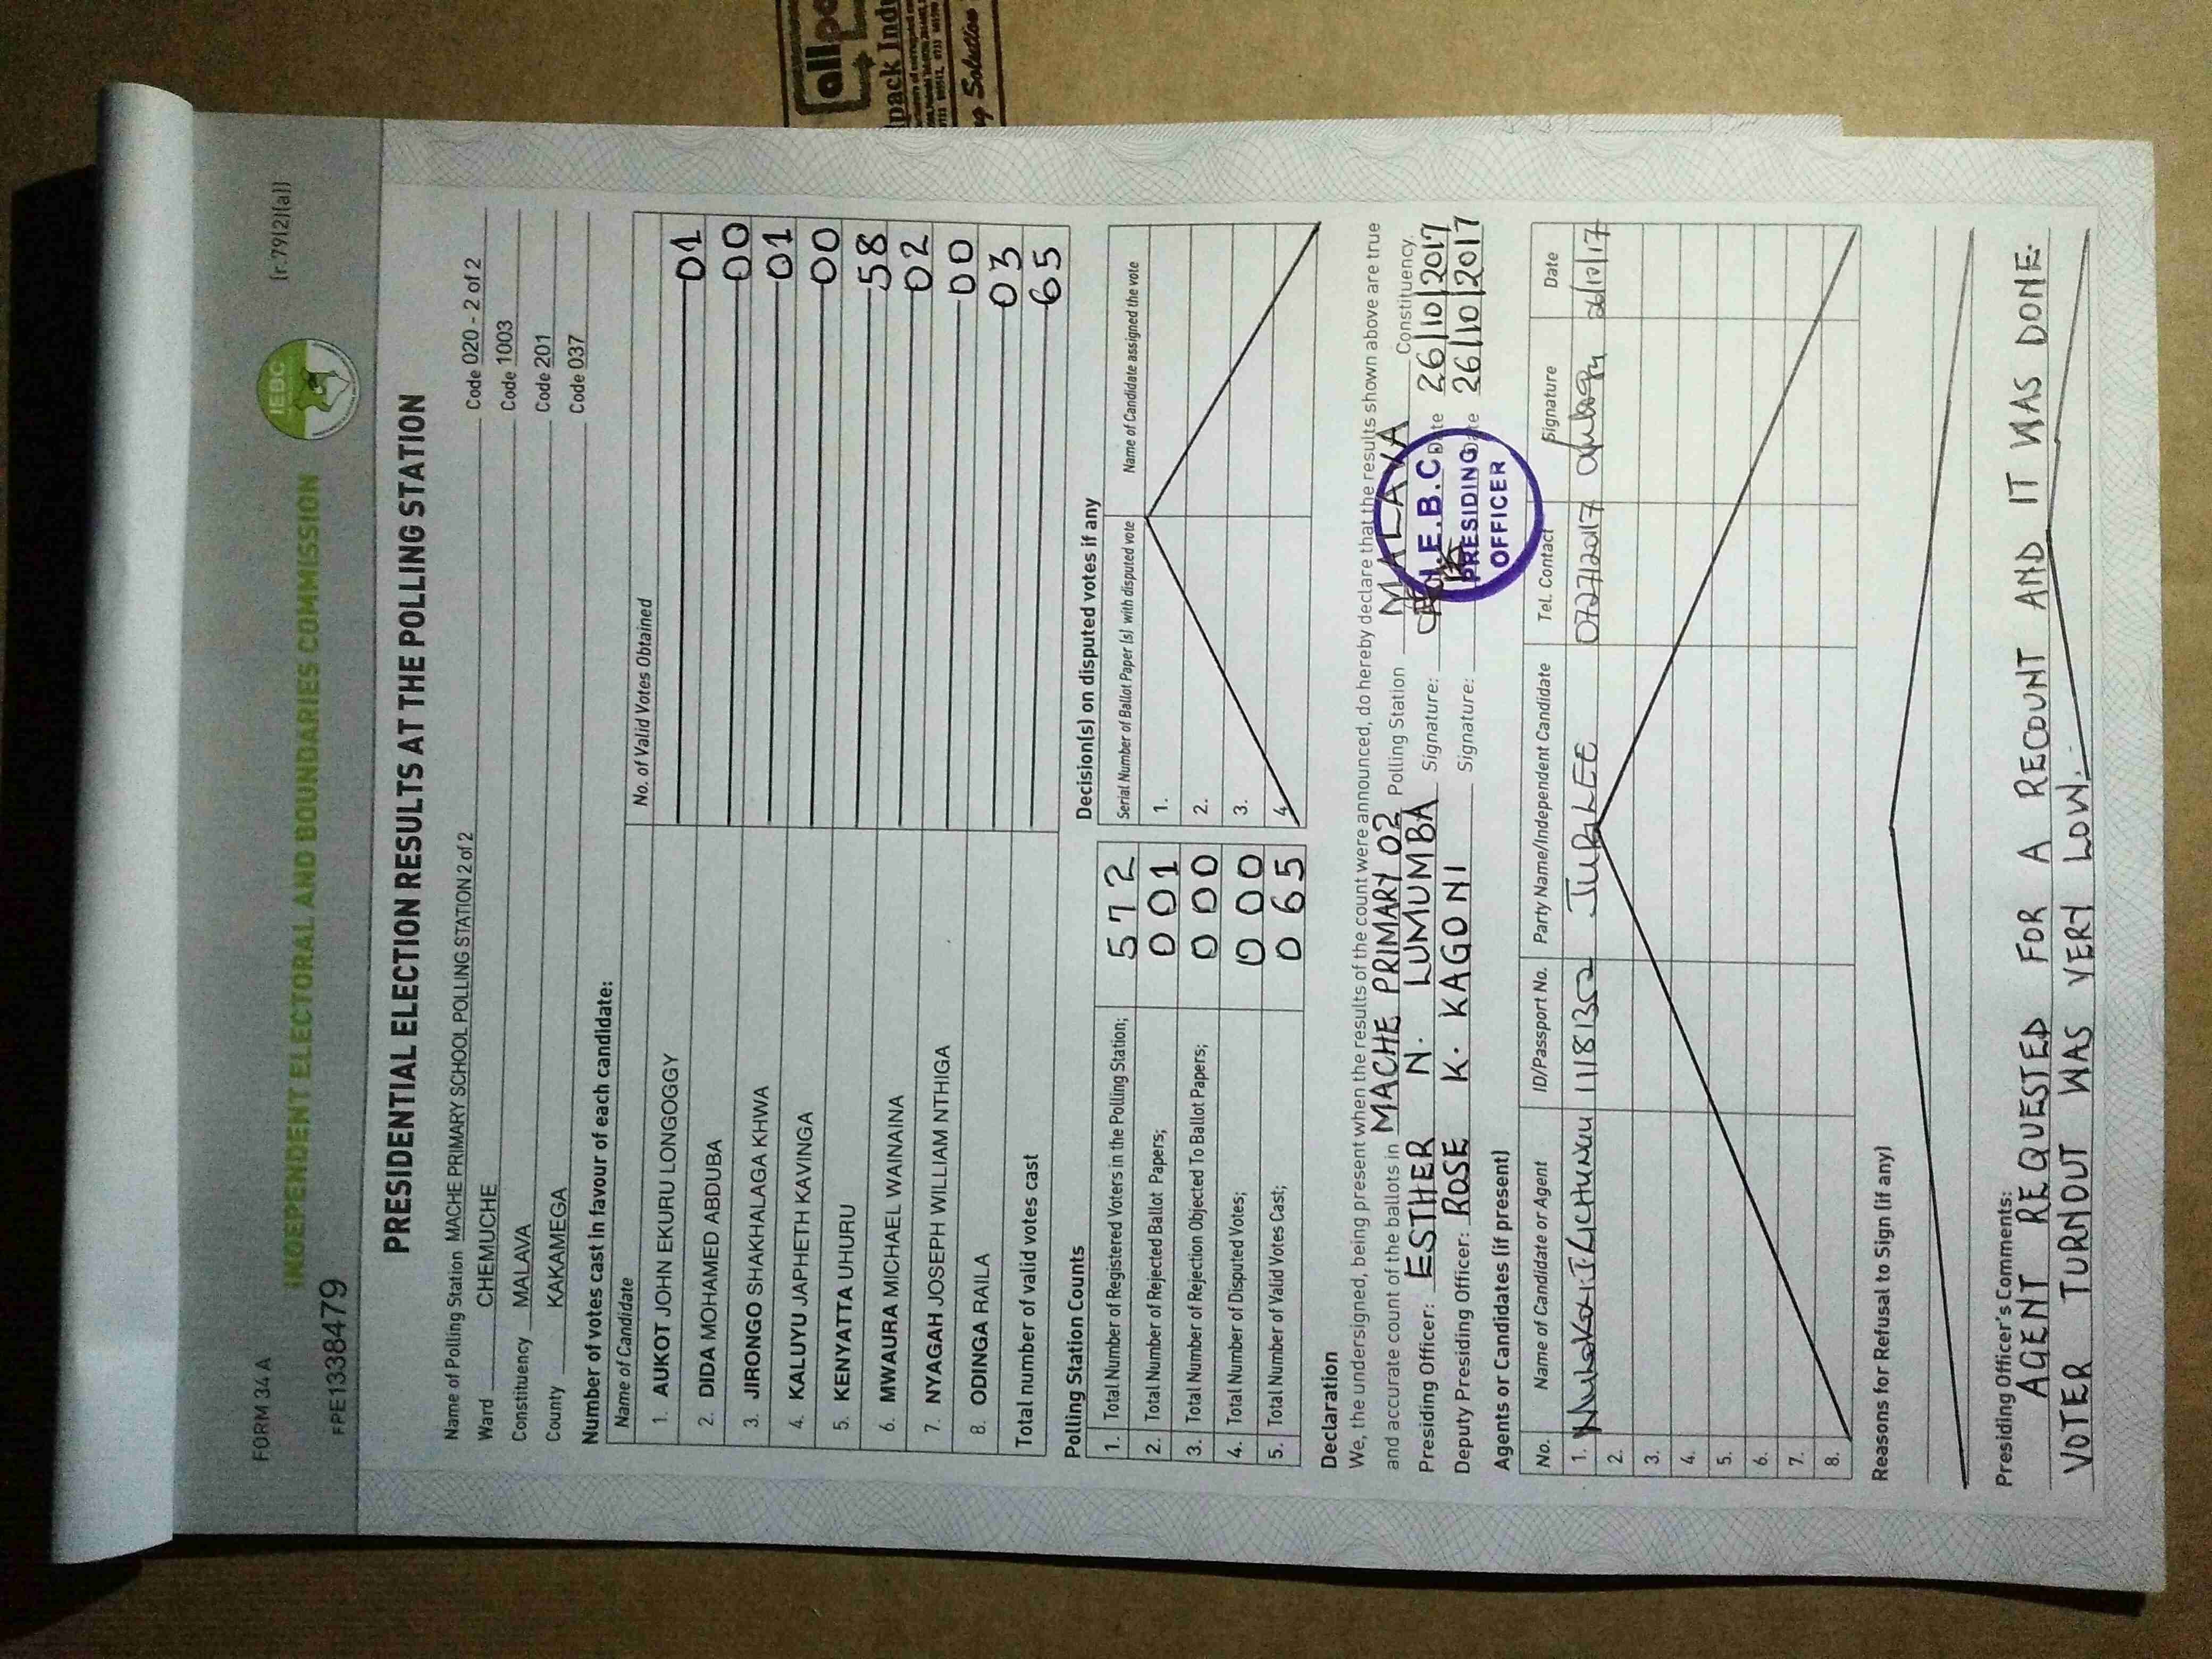 allpa
pack Indu
ng Solution
FORM 34A
(r.79(2)(a))
IEBC
INDEPENDENT ELECTORAL AND BOUNDARIES COMMISSION
FPE1338479
PRESIDENTIAL ELECTION RESULTS AT THE POLLING STATION
Name of Polling Station MACHE PRIMARY SCHOOL POLLING STATION 2 of 2 Code 020 - 2 of 2
Ward CHEMUCHE Code 1003
Constituency MALAVA Code 201
County KAKAMEGA Code 037
Number of votes cast in favour of each candidate:
Name of Candidate No. of Valid Votes Obtained
1. AUKOT JOHN EKURU LONGOGGY 01
2. DIDA MOHAMED ABDUBA 00
3. JIRONGO SHAKHALAGA KHWA 01
4. KALUYU JAPHETH KAVINGA 00
5. KENYATTA UHURU 58
6. MWAURA MICHAEL WAINAINA 02
7. NYAGAH JOSEPH WILLIAM NTHIGA 00
8. ODINGA RAILA 03
Total number of valid votes cast 65
Polling Station Counts
1. Total Number of Registered Voters in the Polling Station; 572
2. Total Number of Rejected Ballot Papers; 001
3. Total Number of Rejection Objected To Ballot Papers; 000
4. Total Number of Disputed Votes; 000
5. Total Number of Valid Votes Cast; 065
Decision(s) on disputed votes if any
Serial Number of Ballot Paper (s) with disputed vote Name of Candidate assigned the vote
1.
2.
3.
4.
Declaration
We, the undersigned, being present when the results of the count were announced, do hereby declare that the results shown above are true
and accurate count of the ballots in MACHE PRIMARY 02 Polling Station MALAVA Constituency.
Presiding Officer: ESTHER N. LUMUMBA Signature: Date 26/10/2017
Deputy Presiding Officer: ROSE K. KAGONI Signature: Date 26/10/2017
I.E.B.C.
PRESIDING
OFFICER
Agents or Candidates (if present)
No. Name of Candidate or Agent ID/Passport No. Party Name/Independent Candidate Tel. Contact Signature Date
1. 11181352 JUBILEE 26/10/17
2.
3.
4.
5.
6.
7.
8.
Reasons for Refusal to Sign (if any)
Presiding Officer's Comments:
AGENT REQUESTED FOR A RECOUNT AND IT WAS DONE.
VOTER TURNOUT WAS VERY LOW.